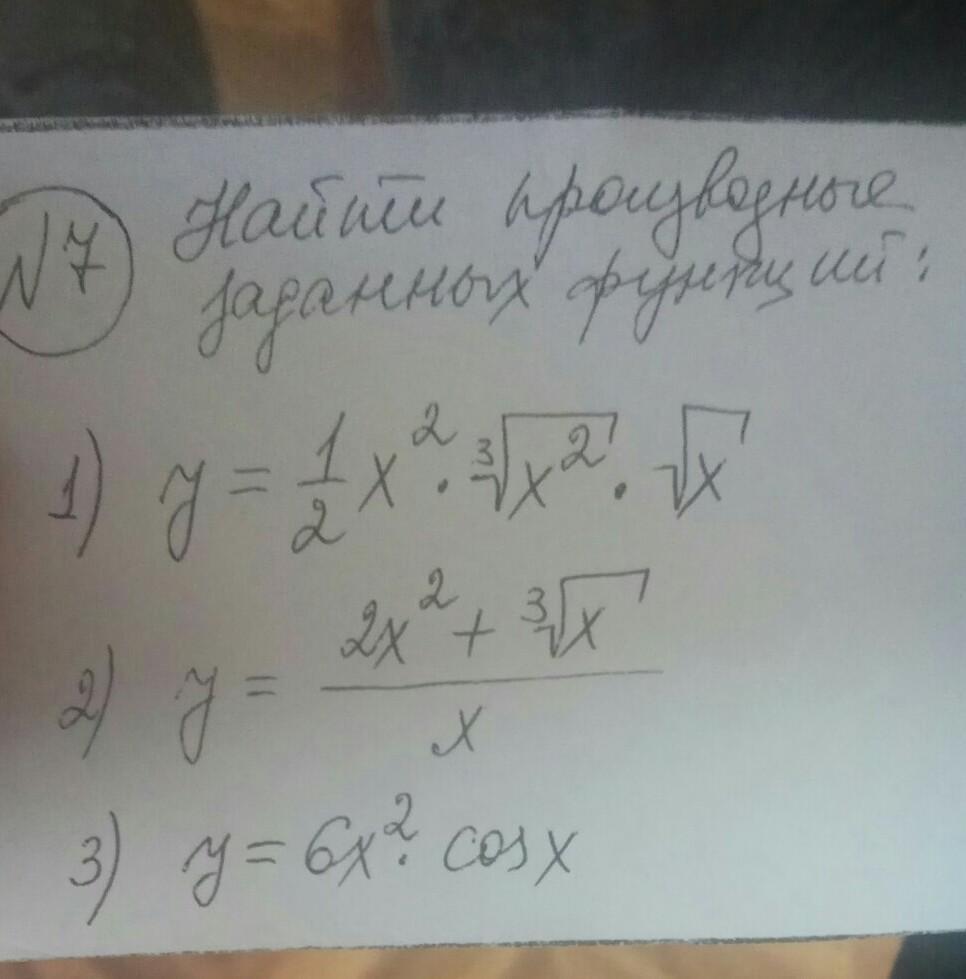 №7 Найти производные
заданных функций:
1) y = 1/2 x² · ∛x² · √x
2) y = (2x² + ∛x) / x
3) y = 6x² · cos x